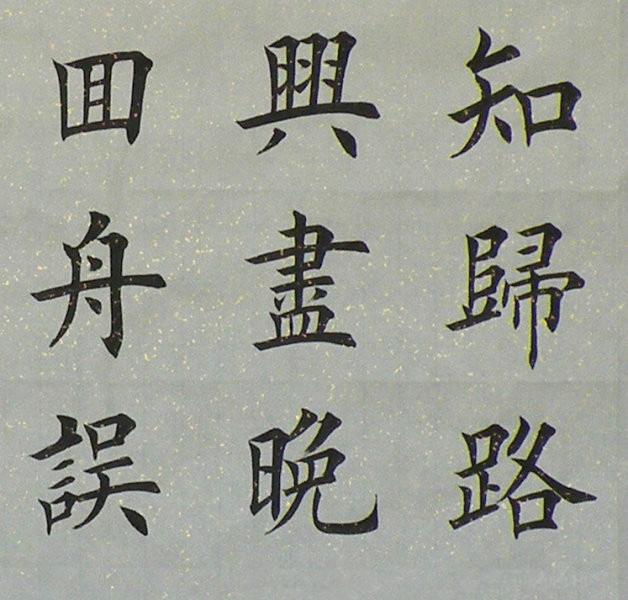 知歸路
興盡晚
回舟誤